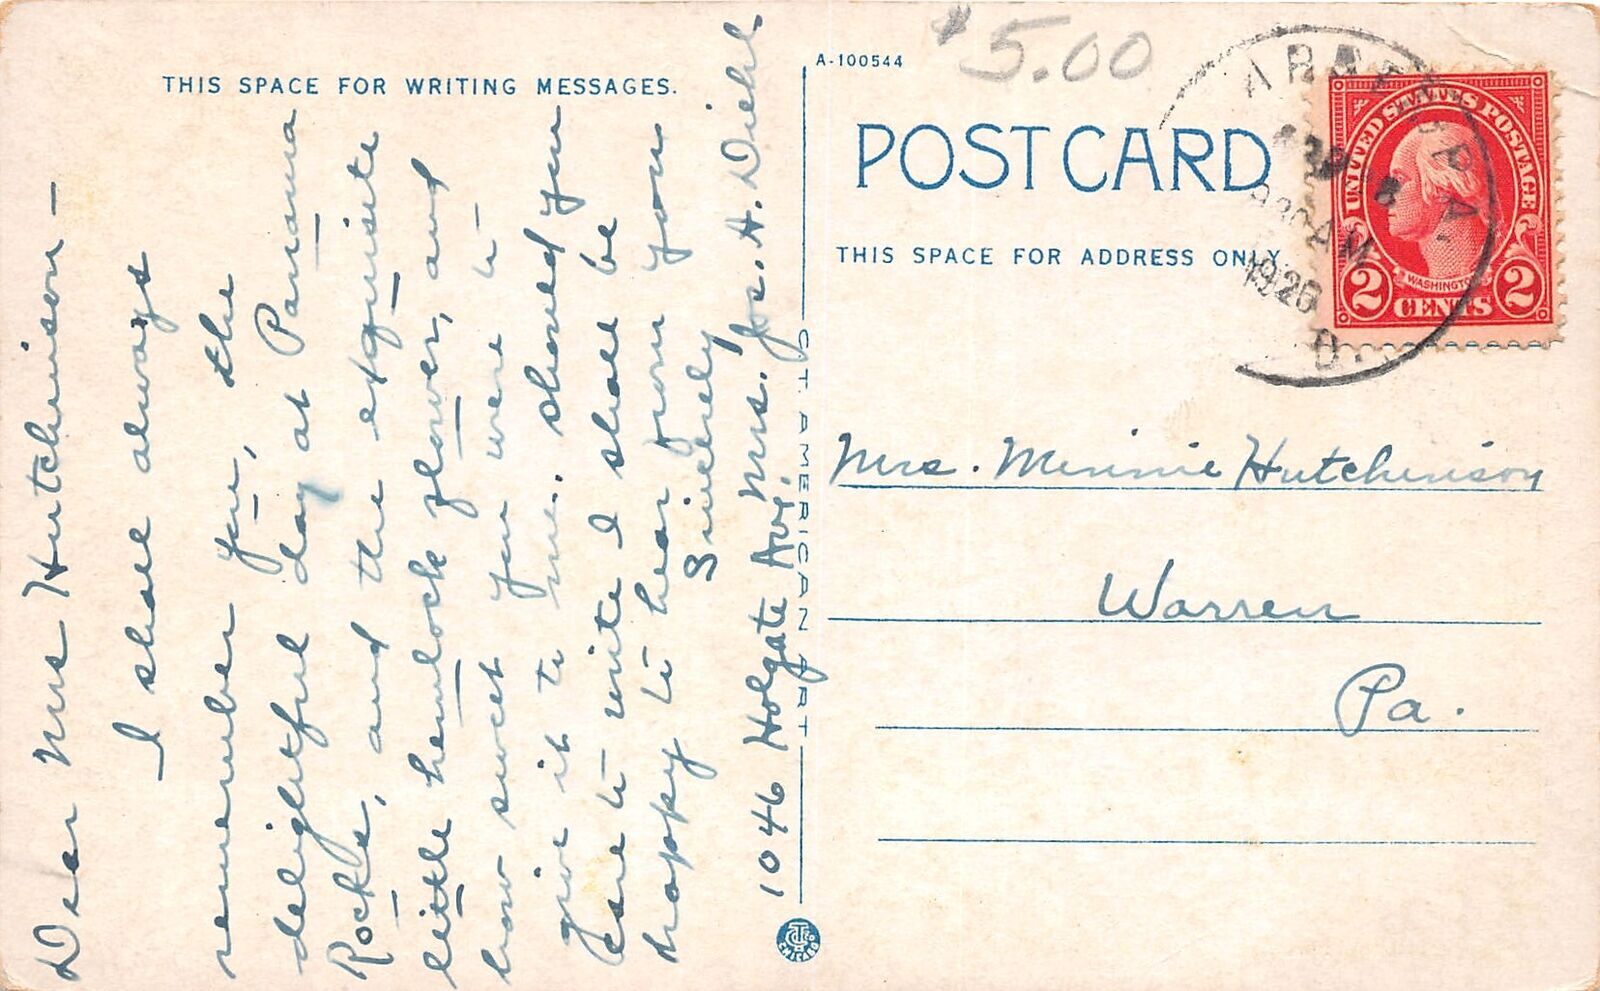 THIS SPACE FOR WRITING MESSAGES.
Dear Mrs Hutchinson –
I shall always
remember you, the
delightful day at Panama
Rocks, and the exquisite
little hemlock flower, and
how sweet you were to
give it to me. Should you
care to write I shall be
happy to hear from you
Sincerely
Mrs. Jos. H. Diehl
1046 Holgate Ave.
C.T. AMERICAN ART
A-100544
$5.00
POST CARD
THIS SPACE FOR ADDRESS ONLY.
PA.
AM
1926
D.
UNITED STATES POSTAGE
WASHINGTON
2 CENTS 2
Mrs. Minnie Hutchinson
Warren
Pa.
CHICAGO